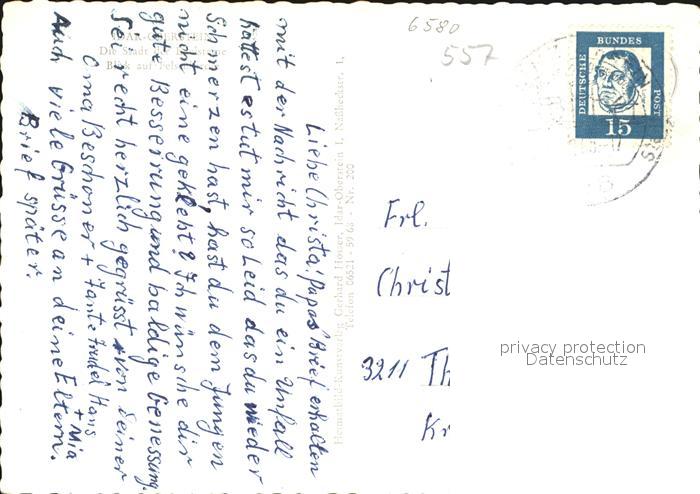 6580
557
DEUTSCHE
BUNDES
POST
15
IDAR-OBERSTEIN
Die Stadt der Edelsteine
Blick auf Felsenkirche
Liebe Christa! Papas Brief erhalten
mit der Nachricht das du ein Unfall
hattest es tut mir so Leid das du wieder
Schmerzen hast, hast du dem Jungen
nicht eine geklebt? Ich wünsche dir
gut Besserung und baldige Genessung.
Sei recht herzlich gegrüsst von deiner
Oma Beschoner + Tante Hans
+ Mia
Auch viele Grüsse an deine Eltern.
Brief später.
Gerhard Idar-Oberstein 1,
Telefon 06521 - Nr. 200
Frl.
Christ
3211 Th
Kr
privacy protection
Datenschutz